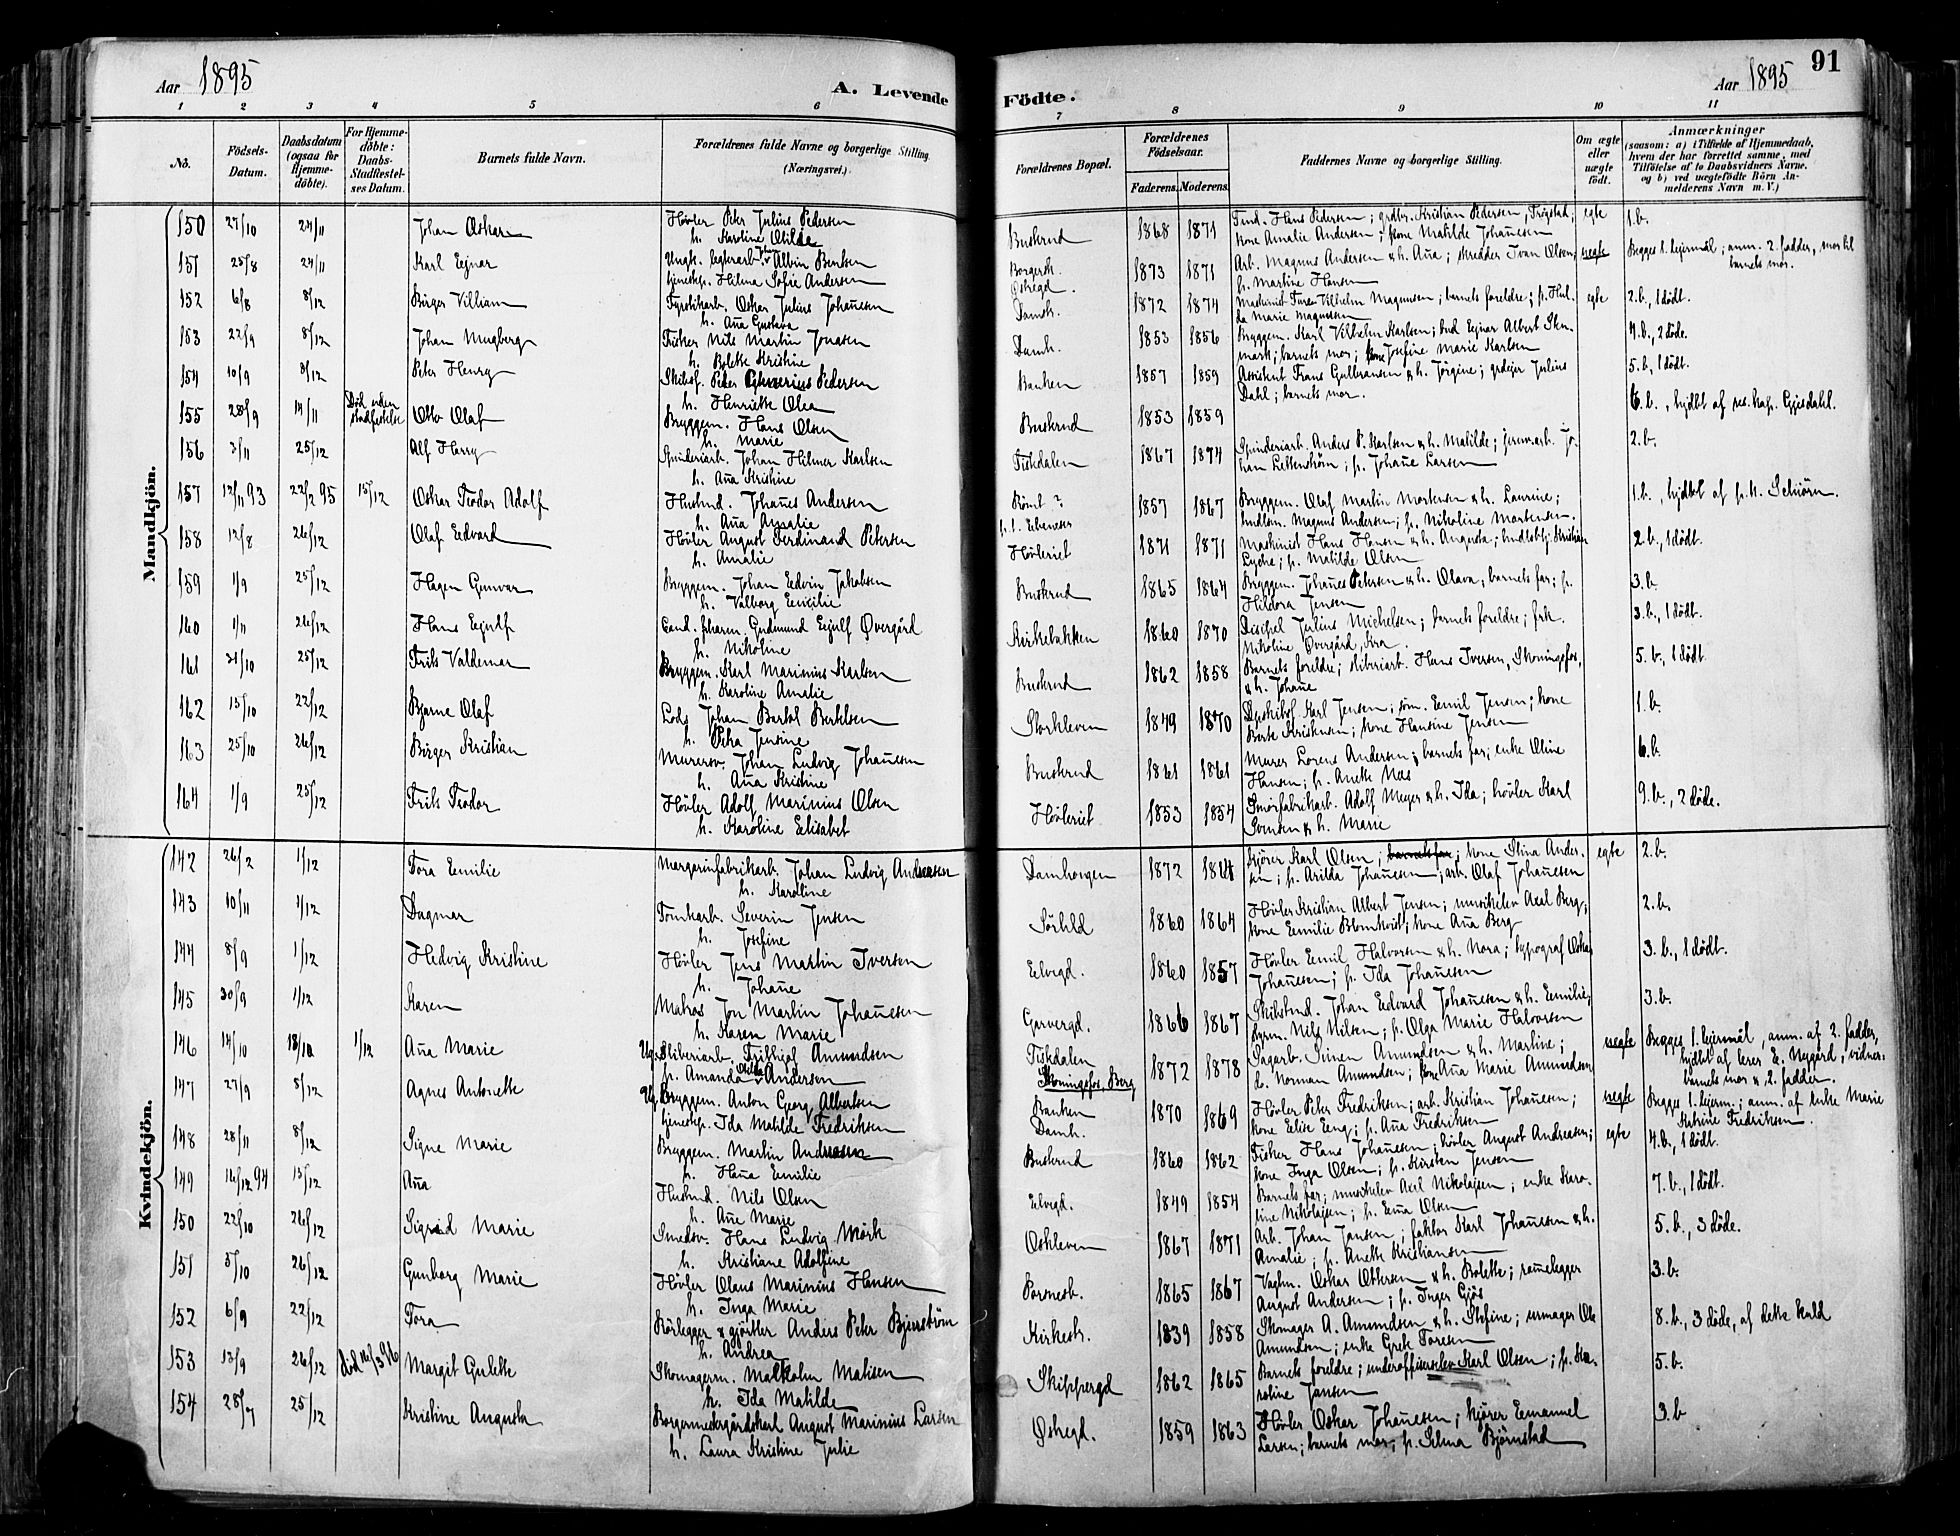 Aar 1895
A. Levende
Födte.
Aar 1895
91
1 2 3 4 5 6 7 8 9 10 11
No.
Födsels-
Datum.
Daabsdatum
(ogsaa for
Hjemme-
döbte).
For Hjemme-
döbte:
Daabs-
Stadfestel-
ses Datum.
Barnets fulde Navn.
Forældrenes fulde Navne og borgerlige Stilling
(Næringsvei.)
Forældrenes Bopæl.
Forældrenes
Födselsaar.
Faderens. Moderens.
Faddernes Navne og borgerlige Stilling.
Om ægte
eller
uægte
födt.
Anmærkninger
(saasom: a) i Tilfælde af Hjemmedaab,
hvem der har forrettet samme, med
Tilföielse af to Daabsvidners Navne.
og b) ved uægtefödte Börn An-
melderens Navn m. V.)
Mandkjön.
150 27/10 24/11 Johan Oskar Høvler Peter Julius Pedersen
h. Karoline Otilde
Buskrud 1868 1871 Hans Pedersen; grdbr. Kristian Pedersen, Trøgstad;
kone Amalie Andersen; kone Matilde Johañesen
egte 1.b.
151 25/8 24/11 Karl Ejnar Ungk. Albin Berntsen
tjenestep. Hilma Sofie Andersen
Borgersk.
Østregd. 1873 1871 Arb. Magnus Andersen & h. Aña; skredder Ivan Olsen;
p. Martine Hansen
uegte Begges 1. lejermål; anm. 2. fadder, mor til
barnets mor.
152 6/8 8/12 Birger Villiam Fyrstikarb. Oskar Julius Johañesen
h. Aña Gustava
Damh. 1872 1874 Maskinist Ture Vilhelm Magnussen; barnets foreldre; p. Hul-
da Marie Magnussen
egte 2.b., 1 dödt.
153 22/9 8/12 Johan Mugberg Fisker Nils Martin Jonasen
h. Bolette Kristine
Damh. 1853 1856 Bryggem. Karl Vilhelm Karlsen; bud Ejnar Albert
barnets mor; kone Josefine Marie Karlsen
4.b., 2 döde.
154 10/9 8/12 Peter Henry Skibsf. Peter Pedersen
h. Henriette Olea
Banken 1857 1859 Assistent Frans Gulbransen & h. Jörgine; grdejer Julius
Dahl; barnets mor.
5.b, 1 dödt.
155 28/9 14/11 Död uden
stadfestelse Otto Olaf Bryggem. Hans Olsen
h. Marie
Buskrud 1853 1859
6.b., hjdbt af res. kap. Gjesdahl.
156 3/11 25/12 Alf Harry Spinderiarb. Johan Hilmer Karlsen
h. Aña Kristine
Fiskdalen 1867 1874 Spinderiarb. Anders P. Karlsen & h. Matilde; jernarb. Jo-
han Lettenström; p. Johañe Larsen
2.b.
157 12/11 93 22/2 95 15/12 Oskar Teodor Adolf Husbnd. Johañes Andersen
h. Aña Amalie
Römt?
p.t. Ebeneser 1857 1867 Bryggem. Olaf Martin Mortensen & h. Laurine;
hndlsm. Magnus Andersen; p. Nikoline Martensen.
1.b., hjdbt af p.h. Schiörn.
158 12/8 26/12 Olaf Edvard Høvler August Ferdinand Petersen
h. Amalie
Høvleriet 1871 1871 Maskinist Hans Hansen & h. Augusta; hndlsbtj. Kristian
Lyche; p. Matilde Olsen
2.b., 1 dödt.
159 1/9 25/12 Hagen Gunvar Bryggem. Johan Edvin Jakobsen
h. Valborg Emilie
Buskrud 1865 1864 Bryggem. Johañes Petersen & h. Olava; barnets far; p.
Hildora Jensen
3.b.
160 1/11 26/12 Hans Ejulf Cand. pharm. Gudmund Ejulf Øvergård
h. Nikoline
Kirkebakken 1860 1870 Discipel Julius Michelsen; barnets foreldre; frk.
Nikoline Øvergård,
3.b., 1 dödt.
161 21/10 25/12 Frits Valdemar Bryggem. Karl Marinius Karlsen
h. Karoline Amalie
Buskrud 1862 1858 Barnets foreldre; sliberiarb. Hans Iversen, Skoningsfos,
& h. Johañe
5.b., 1 dödt.
162 15/10 22/12 Bjarne Olaf Lods Johan Bartol Bertelsen
h. Petra Jensine
Storkleven 1849 1870 Dpskibsf. Karl Jensen; söm. Emil Jensen; kone
Berte Kristensen; kone Hansine Jensen
1.b.
163 25/10 26/12 Birger Kristian Murersv. Johan Ludvig Johañesen
h. Aña Kristine
Buskrud 1861 1861 Murer Lorens Andersen; barnets far; enke Oline
Hansen; p. Anette Nas
6.b.
164 1/9 25/12 Frits Teodor Høvler Adolf Marinius Olsen
h. Karoline Elisabet
Høvleriet 1853 1854 Smörfabrikarb. Adolf Meyer & h. Ida; høvler Karl
& h. Marie
9.b., 2 döde.
Kvindekjön.
142 26/2 1/12 Tora Emilie Margarinfabrikarb. Johan Ludvig Andreasen
h. Karoline
Damborgen 1872 1864 Kjörer Karl Olsen; kone Stina Ander-
sen; p. Arilda Johañesen; arb. Olaf Johañesen
egte 2.b.
143 10/11 1/12 Dagmar Tomtearb. Severin Jensen
h. Josefine
1860 1864 Høvler Kristian Albert Jensen; musikelev Axel Berg;
kone Emilie Blomkvist; kone Aña Berg
2.b.
144 8/9 1/12 Hedvig Kristine Høvler Jens Martin Iversen
h. Johañe
Elvegd. 1860 1857 Høvler Emil Halvorsen & h. Nora; typograf Oskar
Johañesen; p. Ida Johañesen
3.b., 1 dödt.
145 30/9 1/12 Karen Matros Jon Martin Johañesen
h. Karen Marie
Garvergd. 1866 1867 Skibstmd. Johan Edvard Johañesen & h. Emilie;
Nils Nilsen; p. Olga Marie Halvorsen
3.b.
146 14/10 18/10 1/12 Aña Marie Ug. Sliberiarb. Frithjof Amundsen
p. Amanda Otilde Andersen
Fiskdalen
Skoningsfos, Berg 1872 1878 Sagarb. Simen Amundsen & h. Martine;
do. Norman Amundsen; kone Aña Marie Amundsen
uegte Begges 1. lejermål, anm. af 2. fadder,
hjdbt af lerer E. Nygård, vidner:
barnets mor & 2. fadder.
147 27/9 8/12 Agnes Antonette Ug. Bryggem. Anton Georg Albertsen
tjenestep. Ida Matilde Fredriksen
Banken
Damh. 1870 1869 Høvler Peter Fredriksen; arb. Kristian Johañesen;
kone Elise Eng; p. Aña Fredriksen
uegte Begges 1. lejerm.; anm. af enke Marie
Katrine Fredriksen.
148 28/11 8/12 Signe Marie Bryggem. Martin Andreasen
h. Haña Emilie
Buskrud 1860 1862 Fisker Hans Johañesen; høvler August Andreasen;
kone Inga Olsen; p. Kirsten Jensen
egte 4.b., 1 dödt.
149 16/12 94 15/12 Aña Husbnd. Nils Olsen
h. Añe Marie
Elvegd. 1849 1854 Barnets far; musikelev Axel Nikolajsen; enke Karo-
line Nikolajsen; p. Ema Olsen
7.b., 1 dödt.
150 22/10 26/12 Sigrid Marie Smedsv. Hans Ludvig Mörk
h. Kristiane Adolfine
Oskleven 1867 1871 Arb. Johan Jansen; faktor Karl Johañesen & h.
Amalie; p. Anette Kristiansen
5.b., 3 döde.
151 5/10 26/12 Gunborg Marie Høvler Olaus Marinius Hansen
h. Inga Marie
Porsnesb. 1865 1867 Vagtm. Oskar Ottersen & h. Bolette; ramelegger
August Andersen; p. Inger Gjös
3.b.
152 6/9 22/12 Tora Rörlegger & gjörtler Anders Peter Bjurström
h. Andrea
Kirkestr. 1839 1858 Skomager A. Amundsen & h. Stefine; urmager Ole
Amundsen; enke Grete Toresen
8.b., 3 döde, af dette kuld
153 13/9 26/12 död 16/3 96 Margit Gulette Skomagerm. Malkolm Matisen
h. Ida Matilde
Skippergd 1862 1865 Barnets foreldre; underofficerselev Karl Olsen; p. Ka-
roline Jansen
5.b.
154 28/7 25/12 Kristine Augusta Borgermestergårdskarl August Marinius Larsen
h. Laura Kristine Julie
Østregd. 1859 1863 Høvler Oskar Johañesen; kjörer Emanuel
Larsen; barnets mor; p. Selma Björnstad
3.b